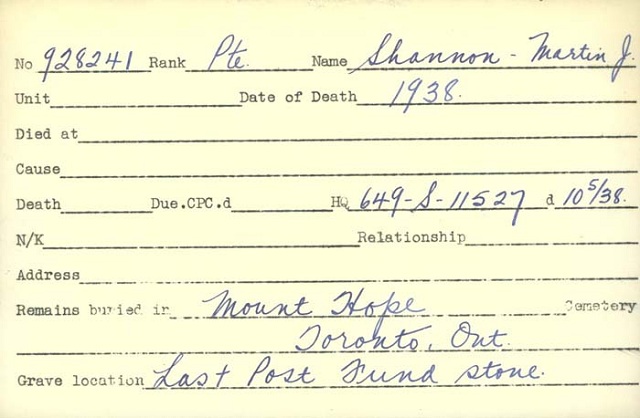 No 928241 Rank Pte. Name Shannon - Martin J.
Unit Date of Death 1938.
Died at
Cause
Death Due.CPC.d HQ 649-S-11527 d 10 5/38.
N/K Relationship
Address
Remains buried in Mount Hope Cemetery
Toronto, Ont.
Grave location Last Post Fund stone.